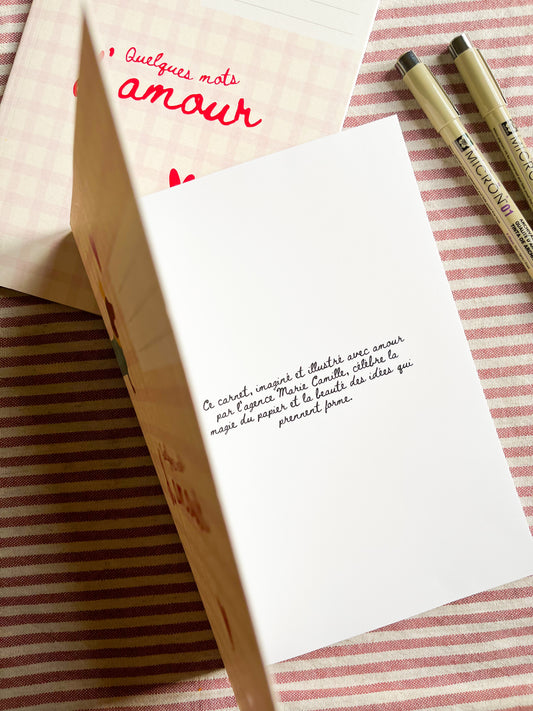 Quelques mots
d'amour
MICRON 01
MICRON
Ce carnet, imaginé et illustré avec amour
par l'agence Marie Camille, célèbre la
magie du papier et la beauté des idées qui
prennent forme.